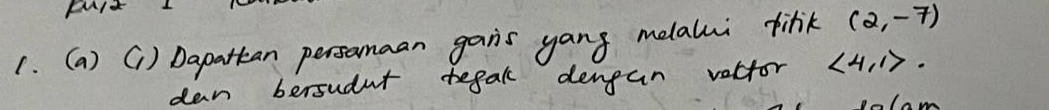 1. (a) (i) Dapatkan persamaan garis yang melalui titik (2,-7)
dan bersudut tegak dengan vektor <4,1>.
dalam